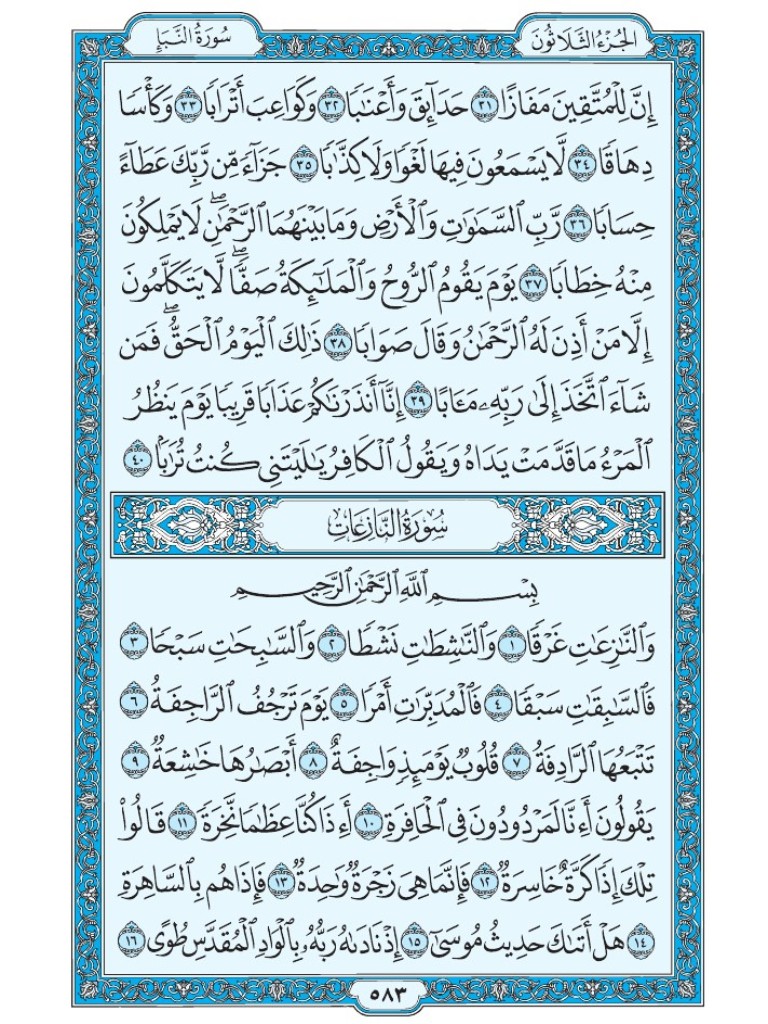 الجُزْءُ الثَّلَاثُونَ
سُورَةُ النَّبَإِ
إِنَّ لِلْمُتَّقِينَ مَفَازًا ٣١ حَدَآئِقَ وَأَعْنَٰبًا ٣٢ وَكَوَاعِبَ أَتْرَابًا ٣٣ وَكَأْسًا
دِهَاقًا ٣٤ لَّا يَسْمَعُونَ فِيهَا لَغْوًا وَلَا كِذَّٰبًا ٣٥ جَزَآءً مِّن رَّبِّكَ عَطَآءً
حِسَابًا ٣٦ رَّبِّ السَّمَٰوَٰتِ وَالْأَرْضِ وَمَا بَيْنَهُمَا الرَّحْمَٰنِ ۖ لَا يَمْلِكُونَ
مِنْهُ خِطَابًا ٣٧ يَوْمَ يَقُومُ الرُّوحُ وَالْمَلَٰٓئِكَةُ صَفًّا ۖ لَّا يَتَكَلَّمُونَ
إِلَّا مَنْ أَذِنَ لَهُ الرَّحْمَٰنُ وَقَالَ صَوَابًا ٣٨ ذَٰلِكَ الْيَوْمُ الْحَقُّ ۖ فَمَن
شَآءَ اتَّخَذَ إِلَىٰ رَبِّهِۦ مَـَٔابًا ٣٩ إِنَّآ أَنذَرْنَٰكُمْ عَذَابًا قَرِيبًا يَوْمَ يَنظُرُ
الْمَرْءُ مَا قَدَّمَتْ يَدَاهُ وَيَقُولُ الْكَافِرُ يَٰلَيْتَنِى كُنتُ تُرَٰبًۢا ٤٠
سُورَةُ النَّازِعَاتِ
بِسْمِ اللَّهِ الرَّحْمَٰنِ الرَّحِيمِ
وَالنَّٰزِعَٰتِ غَرْقًا ١ وَالنَّٰشِطَٰتِ نَشْطًا ٢ وَالسَّٰبِحَٰتِ سَبْحًا ٣
فَالسَّٰبِقَٰتِ سَبْقًا ٤ فَالْمُدَبِّرَٰتِ أَمْرًا ٥ يَوْمَ تَرْجُفُ الرَّاجِفَةُ ٦
تَتْبَعُهَا الرَّادِفَةُ ٧ قُلُوبٌ يَوْمَئِذٍ وَاجِفَةٌ ٨ أَبْصَٰرُهَا خَٰشِعَةٌ ٩
يَقُولُونَ أَءِنَّا لَمَرْدُودُونَ فِى الْحَافِرَةِ ١٠ أَءِذَا كُنَّا عِظَٰمًا نَّخِرَةً ١١ قَالُوا۟
تِلْكَ إِذًا كَرَّةٌ خَاسِرَةٌ ١٢ فَإِنَّمَا هِىَ زَجْرَةٌ وَٰحِدَةٌ ١٣ فَإِذَا هُم بِالسَّاهِرَةِ
١٤ هَلْ أَتَىٰكَ حَدِيثُ مُوسَىٰٓ ١٥ إِذْ نَادَىٰهُ رَبُّهُۥ بِالْوَادِ الْمُقَدَّسِ طُوًى ١٦
٥٨٣